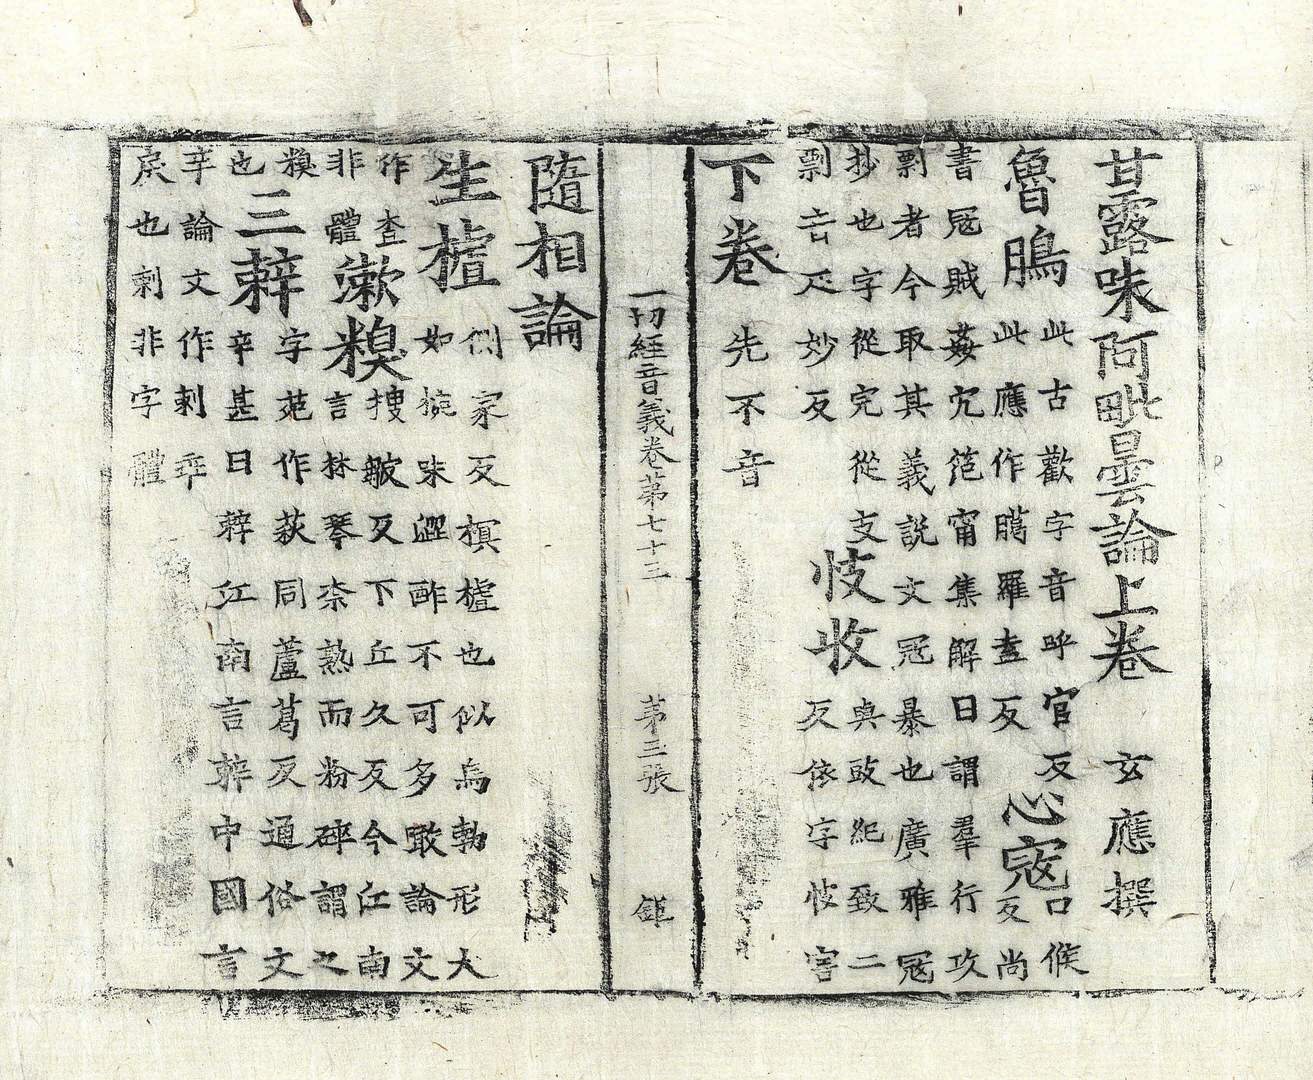 甘露味阿毗曇論上卷 玄應撰
魯鴅
此古歡字音呼官反
此應作臈羅盍反
心寇
口候
反尚
書寇賊姦宄范甯集解曰謂羣行攻
剽者今取其義説文寇暴也廣雅寇
抄也字從完從支
剽音疋妙反
忮收
與豉紀致二
反依字忮害
下卷 先不音
一切經音義卷第七十三 第三張 鉅
隨相論
生樝
側家反榠樝也似烏勃形大
如椀味澀酢不可多噉論文
作查
非體
漱糗
搜皺反下丘久反今江南
言林琴柰熟而粉碎謂之
糗
也
三辢
字苑作萩同蘆葛反通俗文
辛甚曰辢江南言辢中國言
辛論文作剌乖
戾也剌非字體